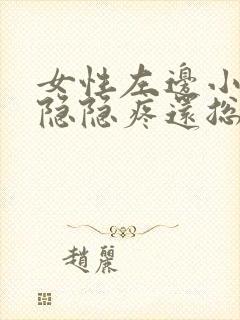 女性左邊小
隐隐疼還㧾
趙麗